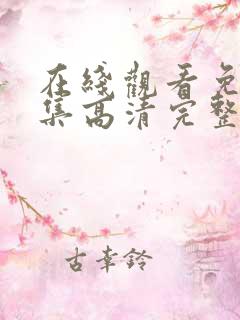 在綫觀看免
集高清完整
古幸鈴